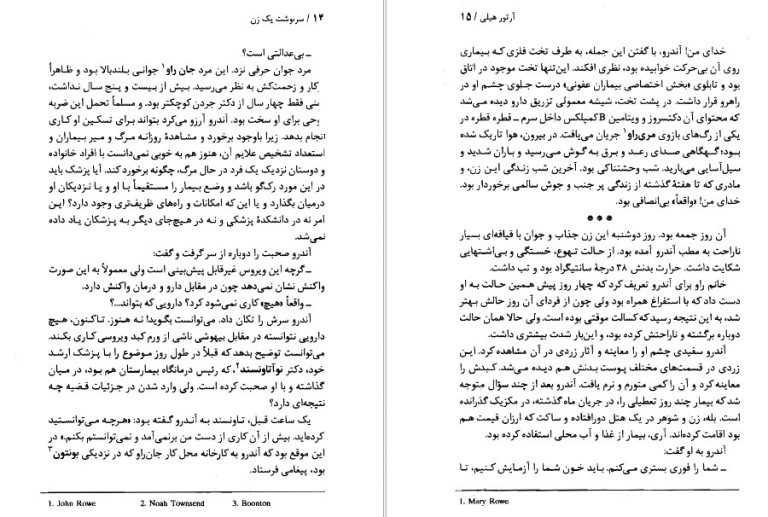 ۱۴ / سرنوشت یک زن
ــ بی‌عدالتی است؟
مرد جوان حرفی نزد. این مرد جان راو۱ جوانی بلندبالا بود و ظاهراً
کار و زحمت‌کش به نظر می‌رسید. بیش از بیست و پنج سال نداشت،
نی فقط چهار سال از دکتر جردن کوچکتر بود. و مسلماً تحمل این ضربه
وحی برای او سخت بود. آندرو آرزو می‌کرد بتواند برای تسکین او کاری
انجام بدهد. زیرا باوجود برخورد و مشاهدهٔ روزانه مرگ و میر بیماران و
استعداد تشخیص علایم آن، هنوز هم به خوبی نمی‌دانست با افراد خانواده
و دوستان نزدیک یک فرد در حال مرگ، چگونه برخورد کند. آیا پزشک باید
در این مورد رک‌گو باشد و وضع بیمار را مستقیماً با او و یا نزدیکان او
درمیان بگذارد و یا این که امکانات و راه‌های ظریف‌تری وجود دارد؟ این
امر نه در دانشکدهٔ پزشکی و نه در هیچ‌جای دیگر به پزشکان یاد داده
نمی‌شد.
آندرو صحبت را دوباره از سر گرفت و گفت:
ــ گرچه این ویروس غیرقابل پیش‌بینی است ولی معمولاً به این صورت
واکنش نشان نمی‌دهد چون در مقابل دارو و درمان واکنش دارد.
ــ واقعاً «هیچ» کاری نمی‌شود کرد؟ دارویی که بتواند...؟
آندرو سرش را تکان داد. می‌توانست بگوید! نه هنوز. تاکنون، هیچ
دارویی نتوانسته در مقابل بیهوشی ناشی از ورم کبد ویروسی کاری بکند.
می‌توانست توضیح بدهد که قبلاً در طول روز موضوع را با پزشک ارشد
خود، دکتر نوآتاونسند۲، که رئیس درمانگاه بیمارستان هم بود، در میان
گذاشته و با او صحبت کرده است. ولی وارد شدن در جزئیات قضیه چه
نتیجه‌ای دارد؟
یک ساعت قبل، تاونسند به آندرو گفته بود: «هرچه می‌توانستید
کرده‌اید. بیش از آن کاری از دست من برنمی‌آمد و نمی‌توانستم بکنم.» در
این موقع بود که آندرو به کارخانه محل کار جان‌راو که در نزدیکی بونتون۳
بود، پیغامی فرستاد.
1. John Rowe 2. Noah Townsend 3. Boonton
آرتور هیلی / ۱۵
خدای من! آندرو، با گفتن این جمله، به طرف تخت فلزی که بیماری
روی آن بی‌حرکت خوابیده بود، نظری افکند. این‌تنها تخت موجود در اتاق
بود و تابلوی «بخش اختصاصی بیماران عفونی» درست جلوی چشم او در
راهرو قرار داشت. در پشت تخت، شیشه معمولی تزریق دارو دیده می‌شد
که محتوای آن دکستروز و ویتامین B کمپلکس داخل سرم ــ قطره قطره در
یکی از رگ‌های بازوی مری‌راو۱ جریان می‌یافت. در بیرون، هوا تاریک شده
بود؛ گهگاهی صدای رعد و برق به گوش می‌رسید و باران شدید و
سیل‌آسایی می‌بارید. شب وحشتناکی بود. آخرین شب زندگی این زن، و
مادری که تا هفتهٔ گذشته از زندگی پر جنب و جوش سالمی برخوردار بود.
خدای من! «واقعاً» بی‌انصافی بود.
* * *
آن روز جمعه بود. روز دوشنبه این زن جذاب و جوان با قیافه‌ای بسیار
ناراحت به مطب آندرو آمده بود. از حالت تهوع، خستگی و بی‌اشتهایی
شکایت داشت. حرارت بدنش ۳۸ درجهٔ سانتیگراد بود و تب داشت.
خانم راو برای آندرو تعریف کرد که چهار روز پیش همین حالت به او
دست داد که با استفراغ همراه بود ولی چون از فردای آن روز حالش بهتر
شد، به این نتیجه رسید که کسالت موقتی بوده است. ولی حالا همان حالت
دوباره برگشته و ناراحتش کرده بود، و این‌بار شدت بیشتری داشت.
آندرو سفیدی چشم او را معاینه و آثار زردی در آن مشاهده کرد. این
زردی در قسمت‌های مختلف پوست بدنش هم دیده می‌شد. کبدش را
معاینه کرد و آن را کمی متورم و نرم یافت. آندرو بعد از چند سؤال متوجه
شد که بیمار چند روز تعطیلی را، در جریان ماه گذشته، در مکزیک گذرانده
است. بله، زن و شوهر در یک هتل دورافتاده و ساکت که ارزان قیمت هم
بود اقامت کرده‌اند. آری، بیمار از غذا و آب محلی استفاده کرده بود.
آندرو به او گفت:
ــ شما را فوری بستری می‌کنم. باید خون شما را آزمایش کنیم، تا
1. Mary Rowe